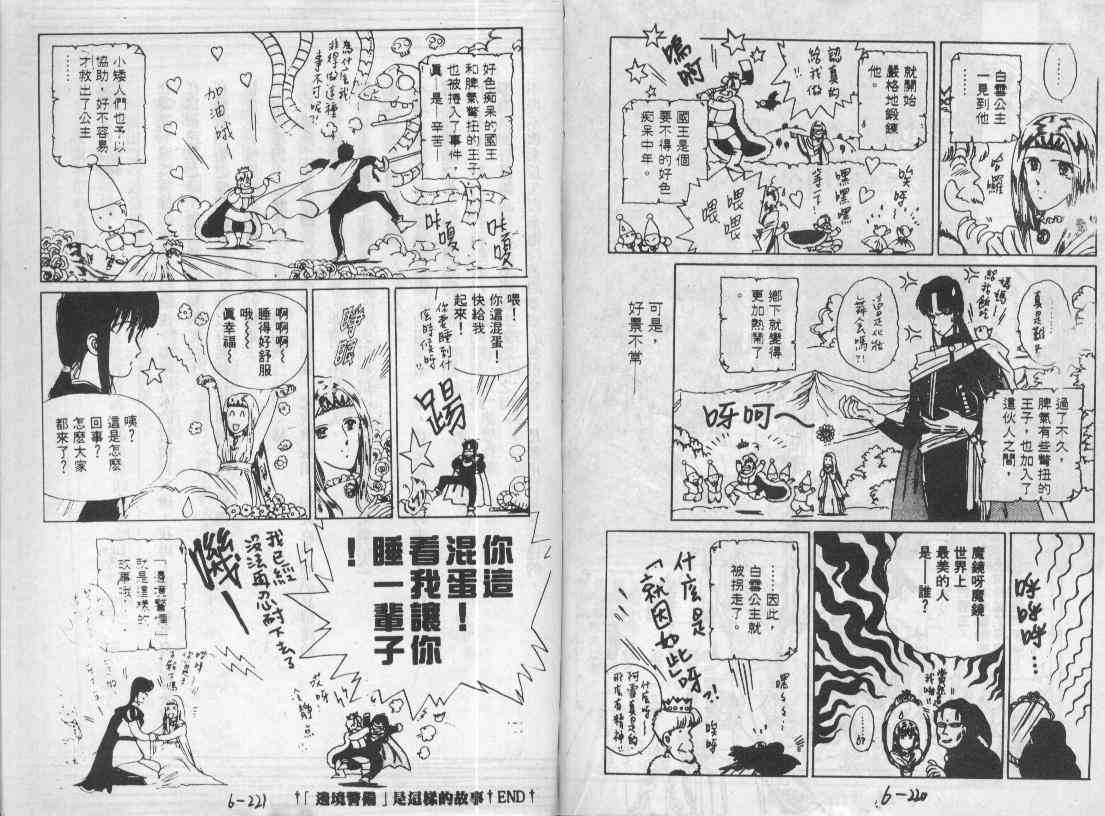 ……
白雲公主
一見到他
哈囉
就開始
嚴格地鍛鍊
他。
認真的
給我做
!!
嗚啊
國王是個
要不得的好色
痴呆中年。
唉呀
嘿嘿嘿
等一下
喂喂
喂喂
媽媽
給我飯吃
過了不久，
脾氣有些彆扭的
王子，也加入了
這伙人之間，
這是化妝
舞會嗎?!
鄉下就變得
更加熱鬧了
。
呀呵～
可是，
好景不常——
魔鏡呀魔鏡——
世界上
最美的人
是——誰?
當然是
我啦!!
……
……因此，
白雲公主就
被拐走了。
嘿
什麼是
「就因如此呀?!
唉呀
什麼呀
阿雲真是的
那麼有精神!!
6-220
好色痴呆的國王
和脾氣彆扭的王子
也被捲入了事件，
真—是—辛苦—
為什麼我
非得做這種
事不可呢?!
加油哦
小矮人們也予以
協助，好不容易
才救出了公主
……
哇嗄
哇嗄
喂！
你這混蛋！
快給我
起來！
你要睡到什
麼時候呀!!
踢
啊啊啊～
睡得好舒服
哦～
真幸福～
咦？
這是怎麼
回事？
怎麼大家
都來了？
你這
混蛋！
看我讓你
睡一輩子
！
我已經
沒法再忍耐下去了
嘰—
哎呀
冷靜點
「邊境警備」
就是這樣的
故事哦。
6-221
†「邊境警備」是這樣的故事†END†